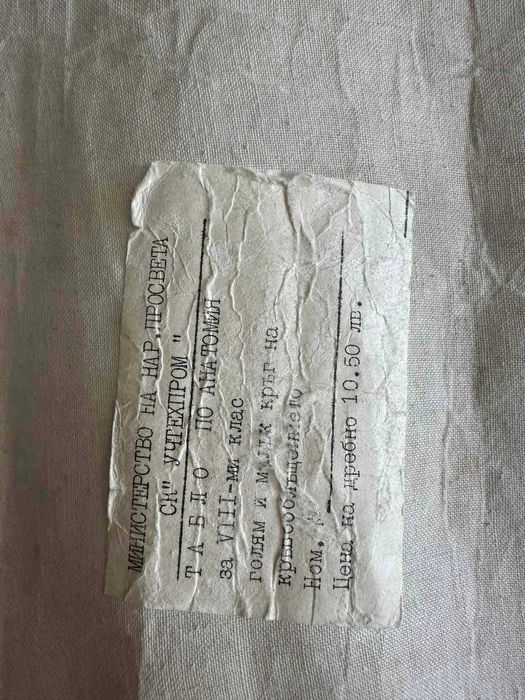 МИНИСТЕРСТВО НА НАР.ПРОСВЕТА
СК" УЧТЕХПРОМ "
Т А Б Л О ПО АНАТОМИЯ
за VIII-ми клас
голям и малък кръг на
кръвообращението
Ном.
Цена на дребно 10.50 лв.